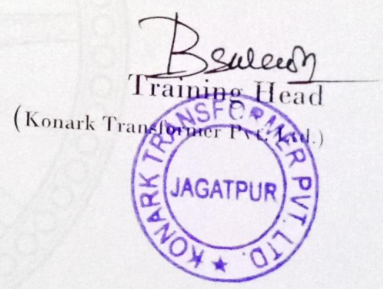 Training Head
(Konark Transformer Pvt. Ltd.)
KONARK TRANSFORMER PVT. LTD.
JAGATPUR